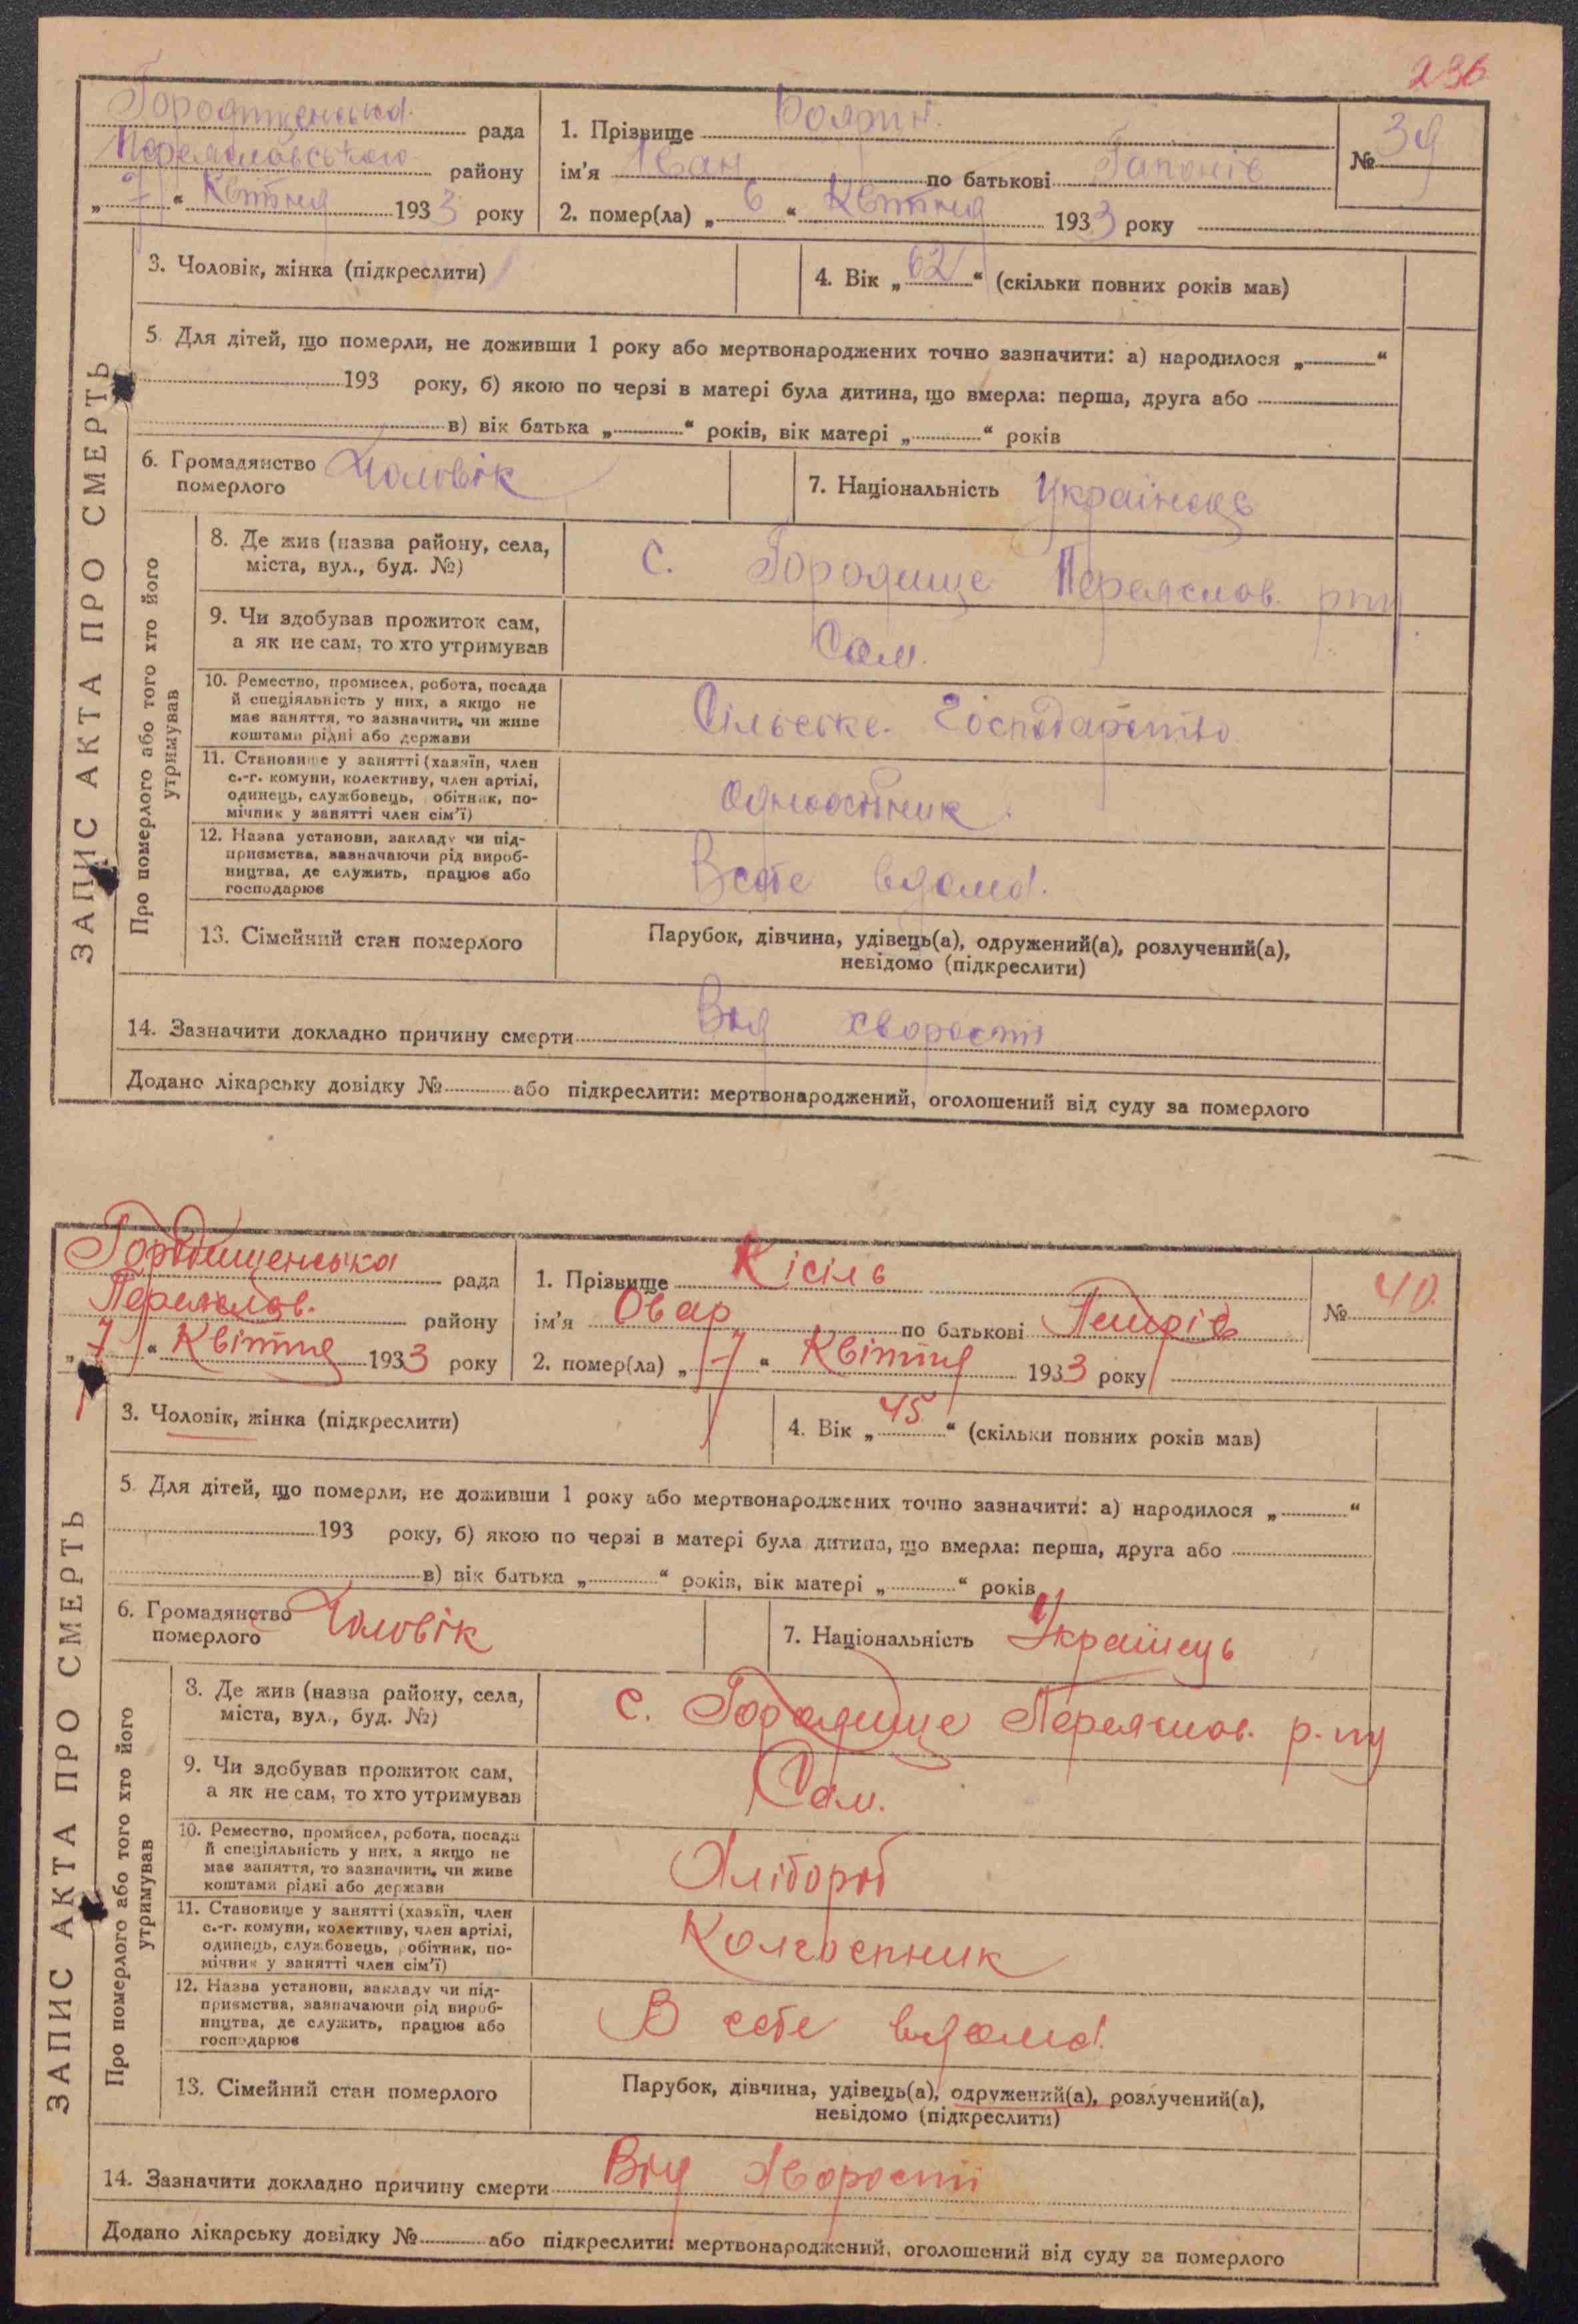 236
Городищенська рада
Переяславського району
„ 7 “ Квітня 1933 року
1. Прізвище Боярин
ім'я Іван по батькові Гапонів
№ 39
2. помер(ла) „ 6 “ Квітня 1933 року
ЗАПИС АКТА ПРО СМЕРТЬ
3. Чоловік, жінка (підкреслити)
4. Вік „ 62 “ (скільки повних років мав)
5. Для дітей, що померли, не доживши 1 року або мертвонароджених точно зазначити: а) народилося „ “
193 року, б) якою по черзі в матері була дитина, що вмерла: перша, друга або
в) вік батька „ “ років, вік матері „ “ років
6. Громадянство
померлого Чоловік
7. Національність Українець
Про померлого або того хто його
утримував
8. Де жив (назва району, села,
міста, вул., буд. №)
с. Городище Переяслов. р-ну
9. Чи здобував прожиток сам,
а як не сам, то хто утримував
Сам.
10. Ремество, промисел, робота, посада
й спеціяльність у них, а якщо не
має заняття, то зазначити, чи живе
коштами рідні або держави
Сільське Господарство
11. Становище у занятті (хазяїн, член
с.-г. комуни, колективу, член артілі,
одинець, службовець, робітник, по-
мічник у занятті член сім'ї)
одноосібник
12. Назва установи, закладу чи під-
приємства, зазначаючи рід вироб-
ництва, де служить, працює або
господарює
В себе вдома.
13. Сімейний стан померлого
Парубок, дівчина, удівець(а), одружений(а), розлучений(а),
невідомо (підкреслити)
14. Зазначити докладно причину смерти Від хворости
Додано лікарську довідку № або підкреслити: мертвонароджений, оголошений від суду за померлого
Городищенська рада
Переяслав. району
„ 7 “ Квітня 1933 року
1. Прізвище Кісіль
ім'я Овар по батькові
№ 40.
2. помер(ла) „ 7 “ Квітня 1933 року
ЗАПИС АКТА ПРО СМЕРТЬ
3. Чоловік, жінка (підкреслити)
4. Вік „ 45 “ (скільки повних років мав)
5. Для дітей, що померли, не доживши 1 року або мертвонароджених точно зазначити: а) народилося „ “
193 року, б) якою по черзі в матері була дитина, що вмерла: перша, друга або
в) вік батька „ “ років, вік матері „ “ років
6. Громадянство
померлого Чоловік
7. Національність Українець
Про померлого або того хто його
утримував
8. Де жив (назва району, села,
міста, вул., буд. №)
с. Городище Переяслов. р-ну
9. Чи здобував прожиток сам,
а як не сам, то хто утримував
Сам.
10. Ремество, промисел, робота, посада
й спеціяльність у них, а якщо не
має заняття, то зазначити, чи живе
коштами рідні або держави
Хлібороб
11. Становище у занятті (хазяїн, член
с.-г. комуни, колективу, член артілі,
одинець, службовець, робітник, по-
мічник у занятті член сім'ї)
Колгоспник
12. Назва установи, закладу чи під-
приємства, зазначаючи рід вироб-
ництва, де служить, працює або
господарює
В себе вдома.
13. Сімейний стан померлого
Парубок, дівчина, удівець(а), одружений(а), розлучений(а),
невідомо (підкреслити)
14. Зазначити докладно причину смерти Від Хворости
Додано лікарську довідку № або підкреслити: мертвонароджений, оголошений від суду за померлого